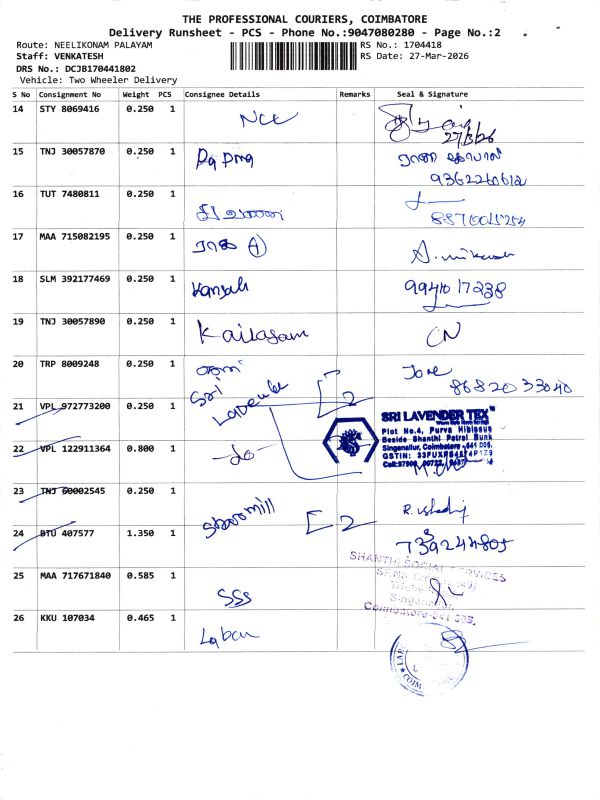 THE PROFESSIONAL COURIERS, COIMBATORE
Delivery Runsheet - PCS - Phone No.:9047080280 - Page No.:2
Route: NEELIKONAM PALAYAM
RS No.: 1704418
Staff: VENKATESH
RS Date: 27-Mar-2026
DRS No.: DCJB170441802
Vehicle: Two Wheeler Delivery
S No Consignment No Weight PCS Consignee Details Remarks Seal & Signature
14 STY 8069416 0.250 1 NCC
27/3/26
15 TNJ 30057870 0.250 1
9362260612
16 TUT 7480811 0.250 1
17 MAA 715082195 0.250 1 ராஜ A
18 SLM 392177469 0.250 1 9941017238
19 TNJ 30057890 0.250 1 Kailasam CN
20 TRP 8009248 0.250 1
8682033040
Sri Lavender [2
21 VPL 972773200 0.250 1
SRI LAVENDER TEX
Plot No.4, Purva Hibiscus
Beside Shanthi Petrol Bunk
Singanallur, Coimbatore -641 005.
22 VPL 122911364 0.800 1 -do-
23 TNJ 60002545 0.250 1
[2
24 BTU 407577 1.350 1
SHANTHI SOCIAL SERVICES
Singanallur,
Coimbatore-641 005.
25 MAA 717671840 0.585 1 SSS
26 KKU 107034 0.465 1 Laban